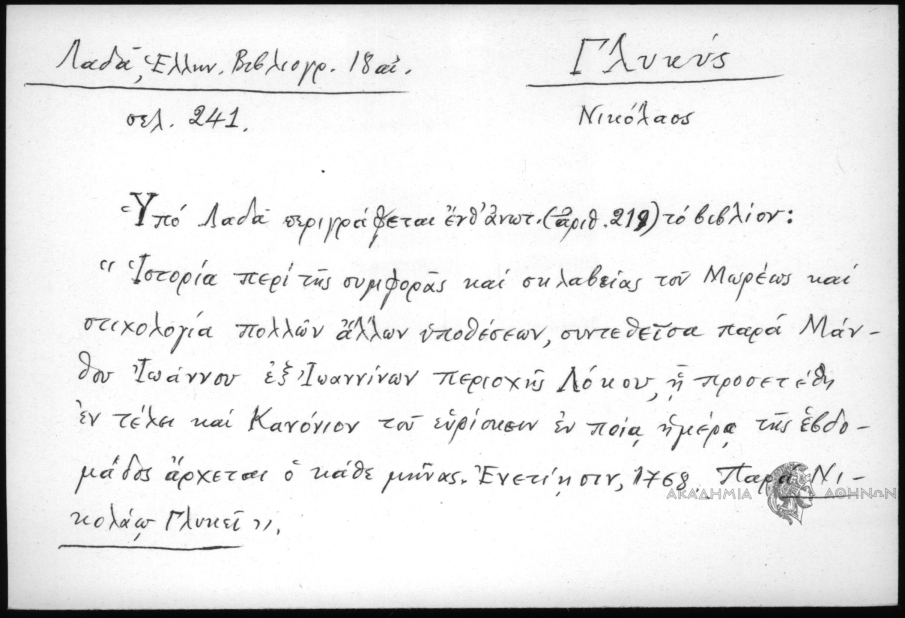 Λαδᾶ, Ἑλλην. Βιβλιογρ. 18 αἰ.
σελ. 241.
Γλυκύς
Νικόλαος
Ὑπό Λαδᾶ περιγράφεται ἔνθ' ἀνωτ. (ἀριθ. 219) τό βιβλίον:
"Ἱστορία περί τῆς συμφορᾶς καί σκλαβείας τοῦ Μωρέως καί
στιχολογία πολλῶν ἄλλων ὑποθέσεων, συντεθεῖσα παρά Μάν-
θου Ἰωάννου ἐξ Ἰωαννίνων περιοχῆς Λόκου, ᾗ προσετέθη
ἐν τέλει καί Κανόνιον τοῦ εὑρίσκειν ἐν ποίᾳ ἡμέρᾳ τῆς ἑβδο-
μάδος ἄρχεται ὁ κάθε μῆνας. Ἐνετίῃσιν, 1768. Παρά Νι-
κολάῳ Γλυκεῖ".
ΑΚΑΔΗΜΙΑ ΑΘΗΝΩΝ